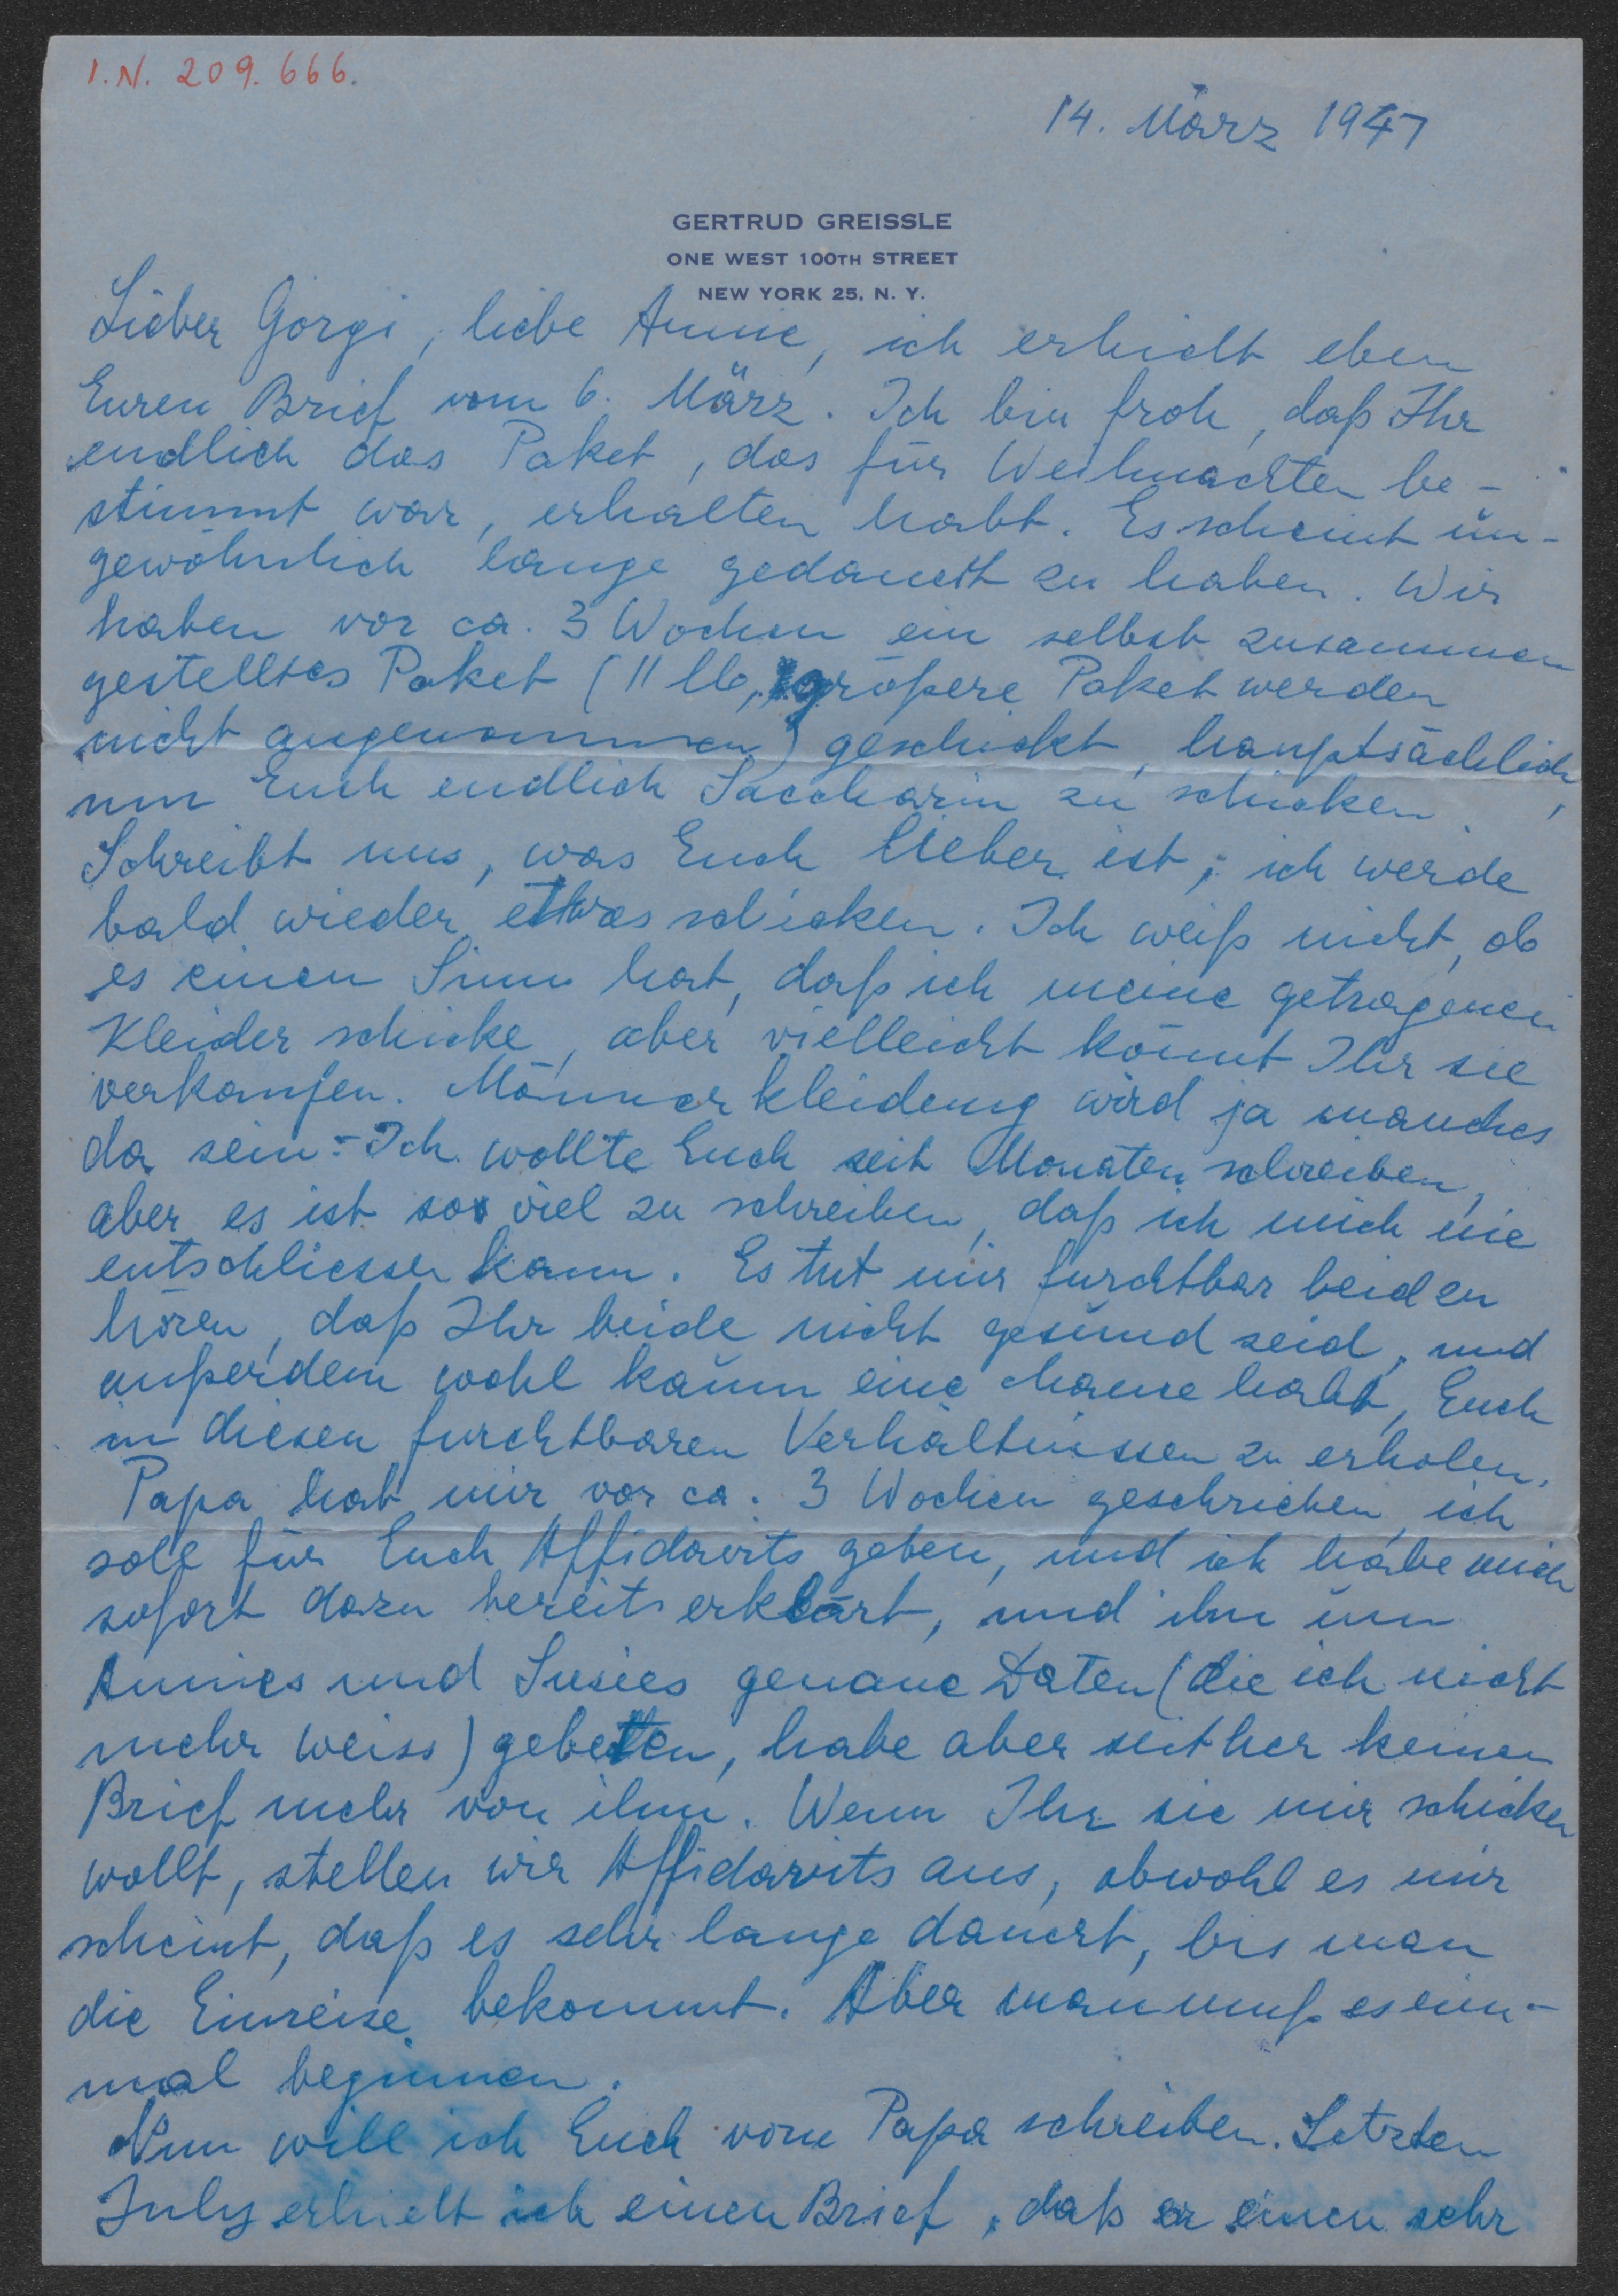 I.N. 209.666.
14. März 1947
GERTRUD GREISSLE
ONE WEST 100TH STREET
NEW YORK 25, N. Y.
Lieber Görgi, liebe Annie, ich erhielt eben
Euren Brief vom 6. März. Ich bin froh, daß Ihr
endlich das Paket, das für Weihnachten be-
stimmt war, erhalten habt. Es scheint un-
gewöhnlich lange gedauert zu haben. Wir
haben vor ca. 3 Wochen ein selbst zusammen
gestelltes Paket (11 lb, größere Paket werden
nicht angenommen) geschickt, hauptsächlich,
um Euch endlich Saccharin zu schicken.
Schreibt uns, was Euch lieber ist; ich werde
bald wieder etwas schicken. Ich weiß nicht, ob
es einen Sinn hat, daß ich meine getragenen
Kleider schicke, aber vielleicht könnt Ihr sie
verkaufen. Männerkleidung wird ja manches
da sein. - Ich wollte Euch seit Monaten schreiben,
aber es ist so viel zu schreiben, daß ich mich nie
entschliessen kann. Es tut mir furchtbar leid zu
hören, daß Ihr beide nicht gesund seid, und
außerdem wohl kaum eine chance habt, Euch
in diesen furchtbaren Verhältnissen zu erholen.
Papa hat mir vor ca. 3 Wochen geschrieben, ich
soll für Euch Affidavits geben, und ich habe mich
sofort dazu bereits erklärt, und ihn um
Annies und Susies genaue Daten (die ich nicht
mehr weiss) gebeten, habe aber seither keinen
Brief mehr von ihm. Wenn Ihr sie mir schicken
wollt, stellen wir Affidavits aus, obwohl es mir
scheint, daß es sehr lange dauert, bis man
die Einreise bekommt. Aber man muß es ein-
mal beginnen.
Nun will ich Euch vom Papa schreiben. Letzten
July erhielt ich einen Brief, daß er einen sehr